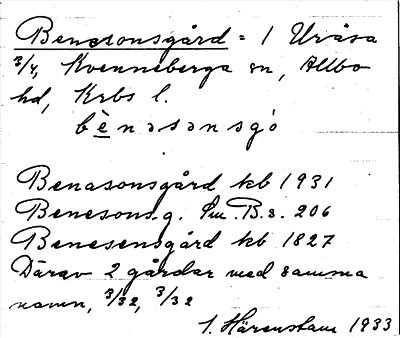 Benesonsgård = 1 Uråsa
3/4, Kvenneberga sn, Allbo
hd, Krbs l.
bènəsənsgó
Benasonsgård kb 1931
Benesons g. Sm. B. s. 206
Benesensgård kb 1827
Därav 2 gårdar med samma
namn, 3/32, 3/32
S. Härenstam 1933